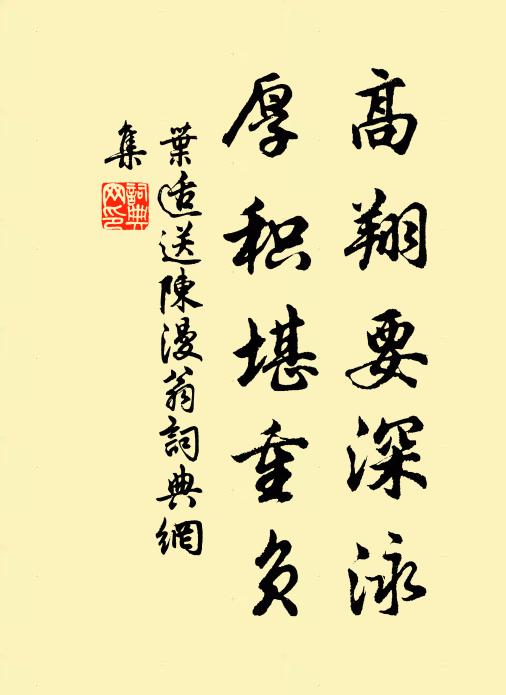 高翔要深泳
厚积堪重负
葉适送陳漫翁詞典網
集
詞典
网印